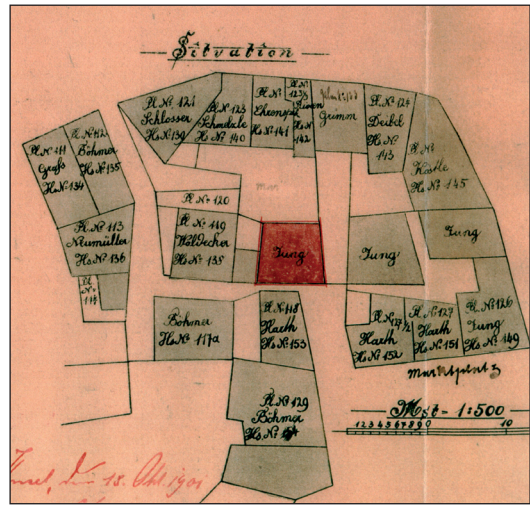 Situation
Pl. Nº 121
Schlosser
Hs Nº 139
Pl. Nº 123
Schmelzle
Hs Nº 140
Pl. Nº
Hs Nº 141
Pl. Nº
123⅓
Hs Nº
142
Grimm
Pl. Nº 124
Deibel
Hs Nº
143
Pl. Nº
Köstle
Hs Nº 145
Pl. Nº 111
Graß
Hs Nº 134
Pl. Nº 112
Böhmer
Hs Nº 135
Pl. Nº 113
Neumüller
Hs. Nº 136
Pl.
Nº
114
Pl. Nº 120
Pl. Nº 119
Hs Nº 135
Jung
Jung
Jung
Böhmer
Hs Nº 117a
Pl. Nº 118
Harth
Hs Nº 153
Pl. Nº 127½
Harth
Hs Nº 152
Pl. Nº 127
Harth
Hs Nº 151
Pl. Nº 126
Jung
Hs. Nº 149
Marktplatz
Pl. Nº 129
Böhmer
Hs. Nº
Mst - 1:500
1 2 3 4 5 6 7 8 9 0 10
den 18. Okt. 1901